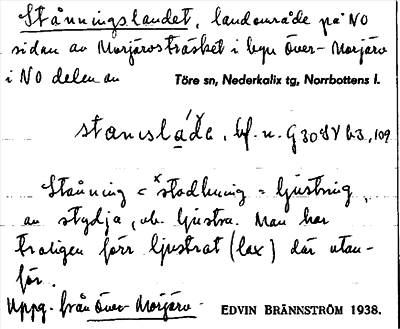 Stånningslandet, landområde på NO
sidan av Morjärvsträsket i byn Över-Morjärv
i NO delen av Töre sn, Nederkalix tg, Norrbottens l.
bf. n. G
Stånning < *stödhning = ljustring,
av stydja, vb. ljustra. Man har
troligen förr ljustrat (lax) där utan-
för.
Uppg. från Över Morjärv. EDVIN BRÄNNSTRÖM 1938.